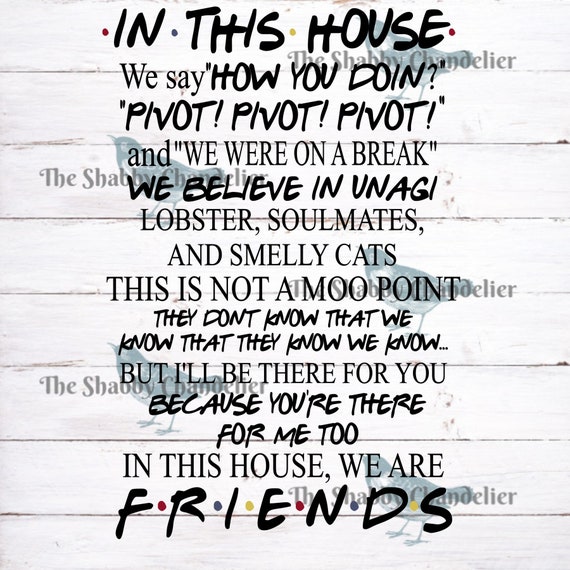 •IN • THIS • HOUSE•
The Shabby Chandelier
We say "HOW YOU DOIN?"
"PIVOT! PIVOT! PIVOT!"
and "WE WERE ON A BREAK"
The Shabby Chandelier
WE BELIEVE IN UNAGI
LOBSTER, SOULMATES,
AND SMELLY CATS
THIS IS NOT A MOO POINT
The Shabby Chandelier
THEY DON'T KNOW THAT WE
KNOW THAT THEY KNOW WE KNOW...
BUT I'LL BE THERE FOR YOU
The Shabby Chandelier
BECAUSE YOU'RE THERE
FOR ME TOO
IN THIS HOUSE, WE ARE
The Shabby Chandelier
F•R•I•E•N•D•S